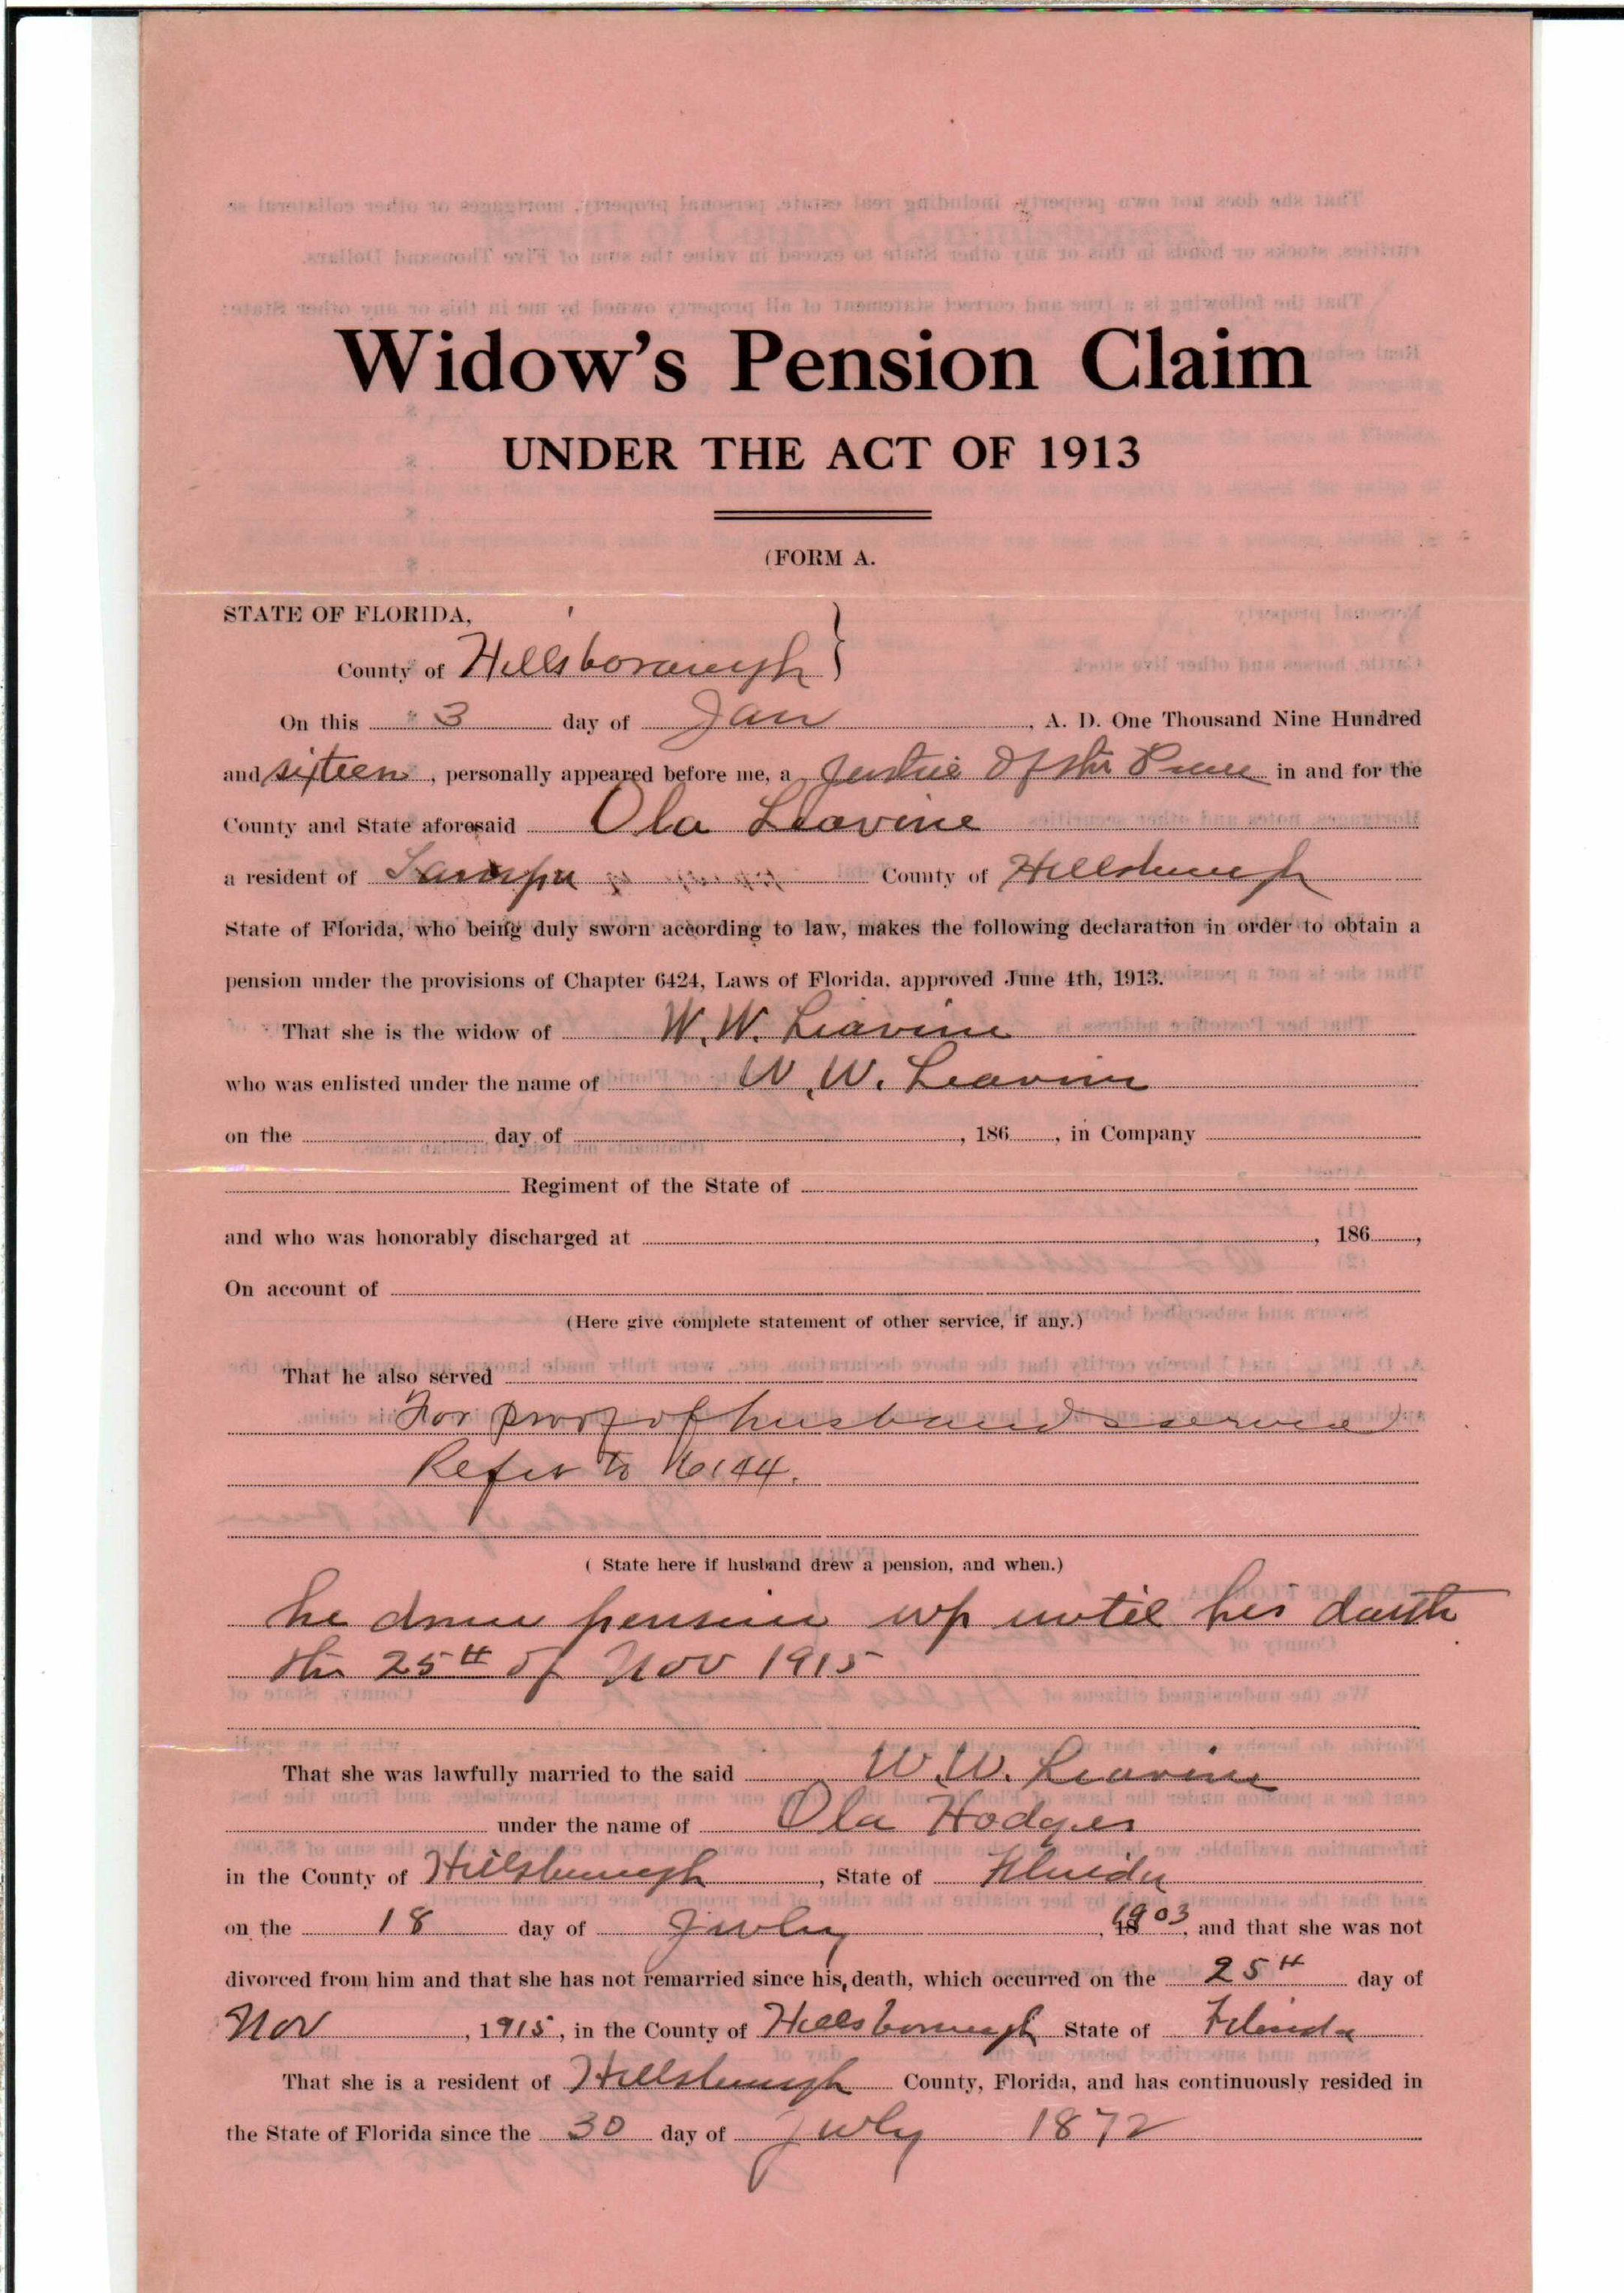 Widow's Pension Claim
UNDER THE ACT OF 1913
(FORM A.
STATE OF FLORIDA,
County of Hillsborough }
On this 3 day of Jan, A. D. One Thousand Nine Hundred
and sixteen, personally appeared before me, a Justice Of the Peace in and for the
County and State aforesaid Ola Leavine
a resident of Tampa County of Hillsborough
State of Florida, who being duly sworn according to law, makes the following declaration in order to obtain a
pension under the provisions of Chapter 6424, Laws of Florida, approved June 4th, 1913.
That she is the widow of W. W. Leavine
who was enlisted under the name of W. W. Leavine
on the day of , 186 , in Company
Regiment of the State of
and who was honorably discharged at , 186 ,
On account of
(Here give complete statement of other service, if any.)
That he also served
For proof of husbands service
Refer to 144.
( State here if husband drew a pension, and when.)
he drew pension up until his death
the 25th of Nov 1915
That she was lawfully married to the said W. W. Leavine
under the name of Ola Hodges
in the County of Hillsborough, State of Florida
on the 18 day of July, 1903, and that she was not
divorced from him and that she has not remarried since his death, which occurred on the 25th day of
Nov, 1915, in the County of Hillsborough State of Florida
That she is a resident of Hillsborough County, Florida, and has continuously resided in
the State of Florida since the 30 day of July 1872